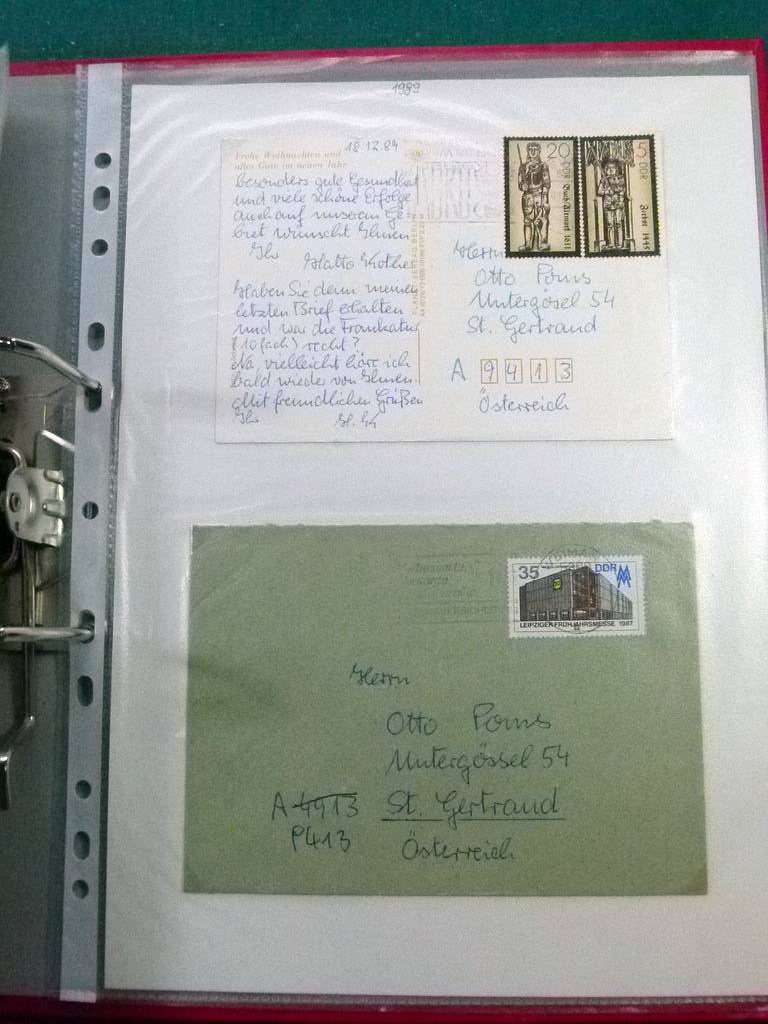 1989
18 12 89
Frohe Weihnachten und
alles Gute im neuen Jahr
besonders gute Gesundheit
und viele schöne Erfolge
auch auf unserem Ge-
biet wünscht Ihnen
Ihr
Haben Sie denn meinen
letzten Brief erhalten
und war die Frankatur
(10fach) recht?
Na, vielleicht höre ich
bald wieder von Ihnen.
Mit freundlichen Grüßen
Ihr
PLANET-VERLAG BERLIN
20 DDR
1611
5 DDR
Zerbst 1445
Herrn
Otto Poms
Untergösel 54
St. Gertrand
A 9413
Österreich
35 DDR
LEIPZIGER FRÜHJAHRSMESSE 1987
Herrn
Otto Poms
Untergössel 54
A 4913 St. Gertrand
9413 Österreich